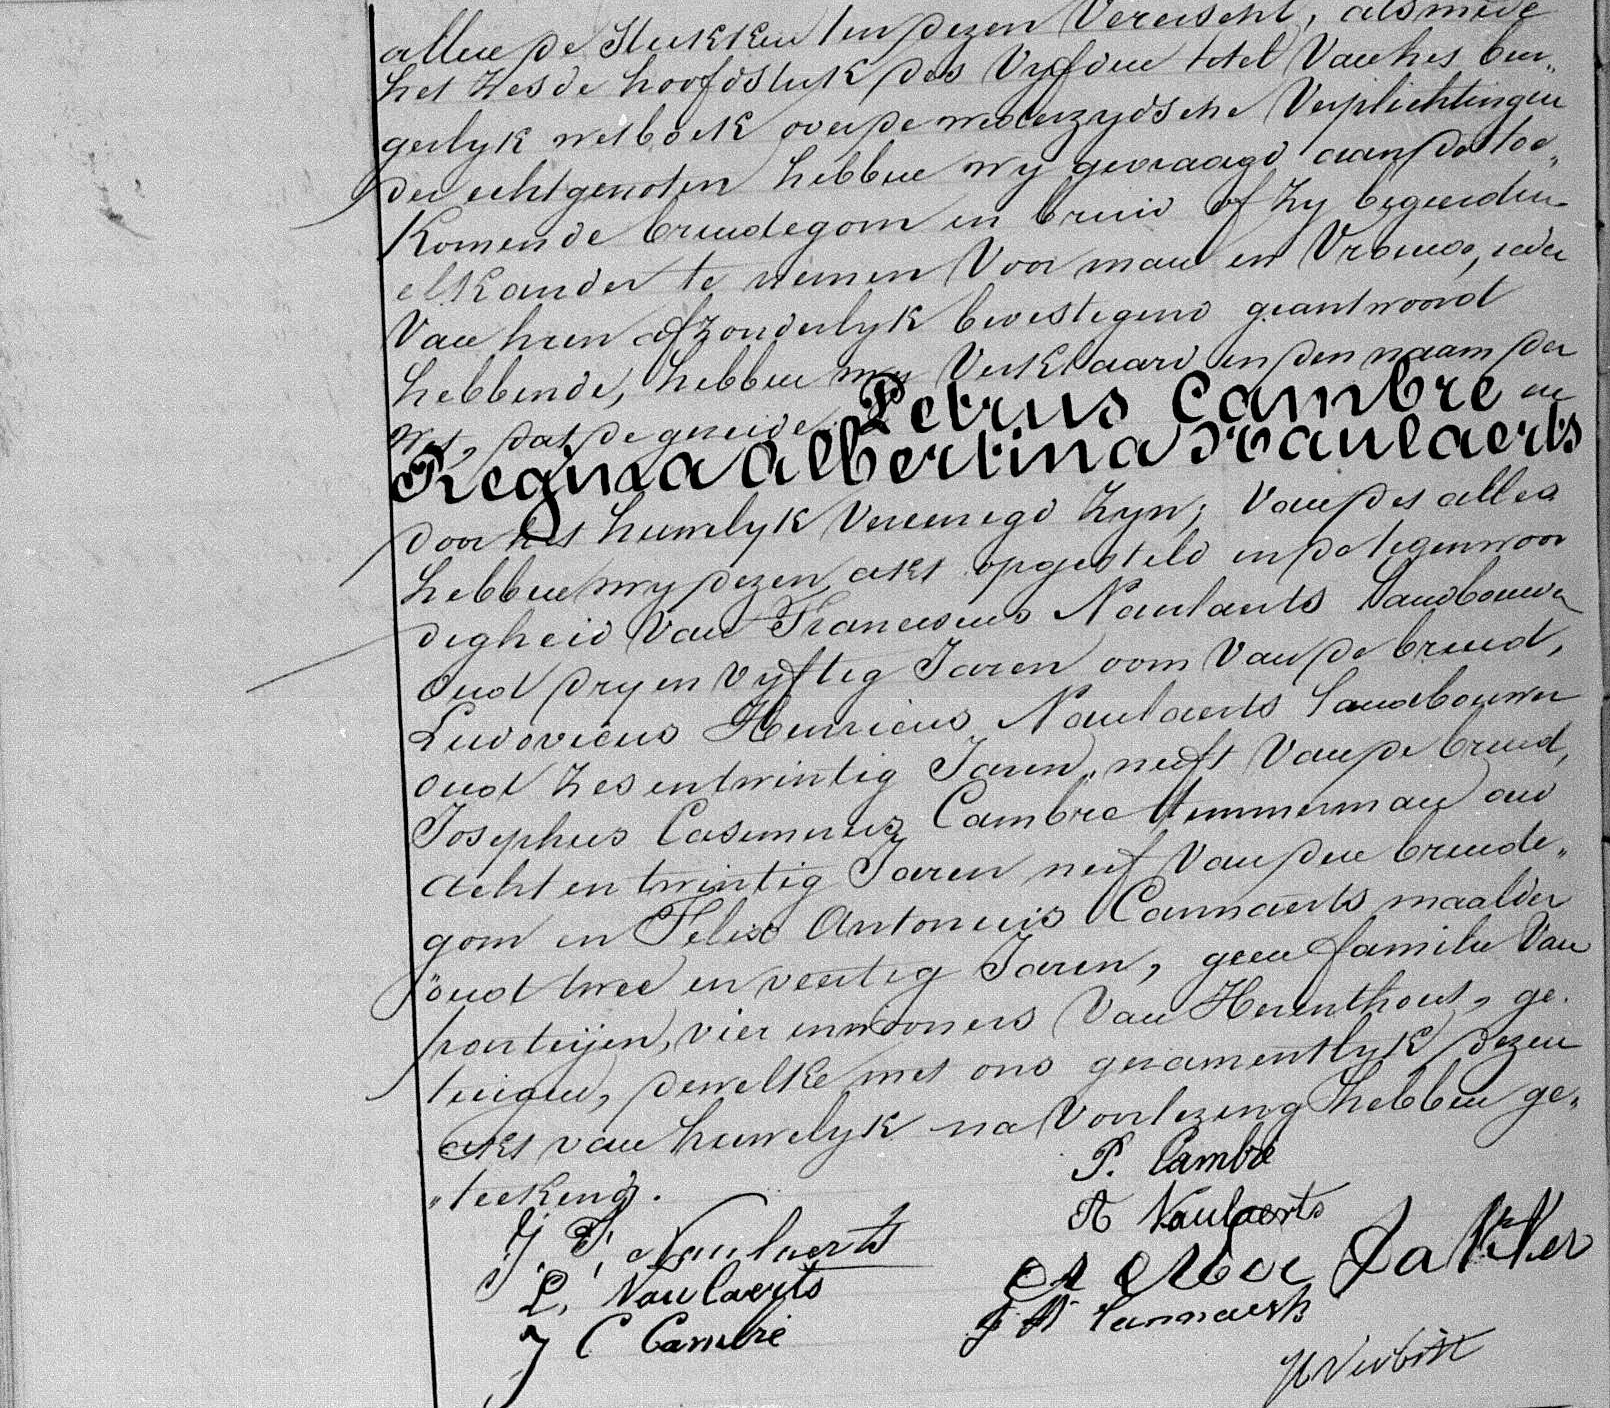 alle de stukken ten dezen Vereischt, alsmede
het zesde hoofdstuk des Vyfden titel Van het bur„
gerlyk wetboek over de wederzydsche Verplichtingen
der echtgenoten hebben wy gevraagd aan de toe„
Komende bruidegom en bruid of zy begeerden
elkander te nemen Voor man en Vrouw, ieder
Van hun afzonderlyk bevestigend geantwoord
hebbende, hebben wy Verklaard in den naam der
Wet, dat de gemelde Petrus Cambré en
Regina Albertina Naulaerts
door het huwelyk Vereenigd Zyn; Van des alles
hebben wy dezen akt opgesteld in de tegenwoor
digheid Van Franciscus Naulaerts Landbouwer
oud dry en vyftig Jaren oom Van de bruid,
Ludovicus Henricus Naulaerts Landbouwer
oud zes en twintig Jaren, neeft Van de bruid,
Josephus Casimirus Cambré timmerman oud
acht en twintig Jaren neef Van den bruide„
gom en Felix Antonius Cannaerts maalder
oud twee en veertig Jaren, geen familie Van
partijen, vier inwooners Van Herenthout, ge„
tuigen, dewelke met ons gezamentlyk dezen
akt van huwelyk na Voorlezing hebben ge„
„teekend.
P. Cambré
A Naulaerts
J. F. Naulaerts
L. Naulaerts
J C Cambré
De Backer
F A Cannaerts